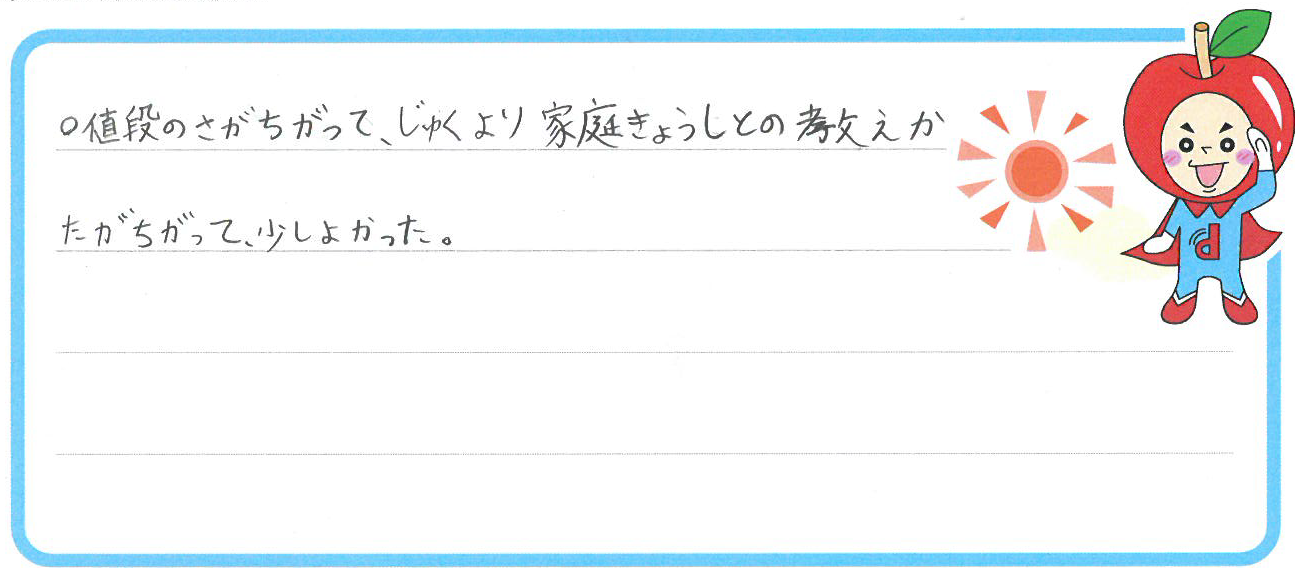 ○値段のさがちがって、じゅくより家庭きょうしとの教えか
たがちがって、少しよかった。